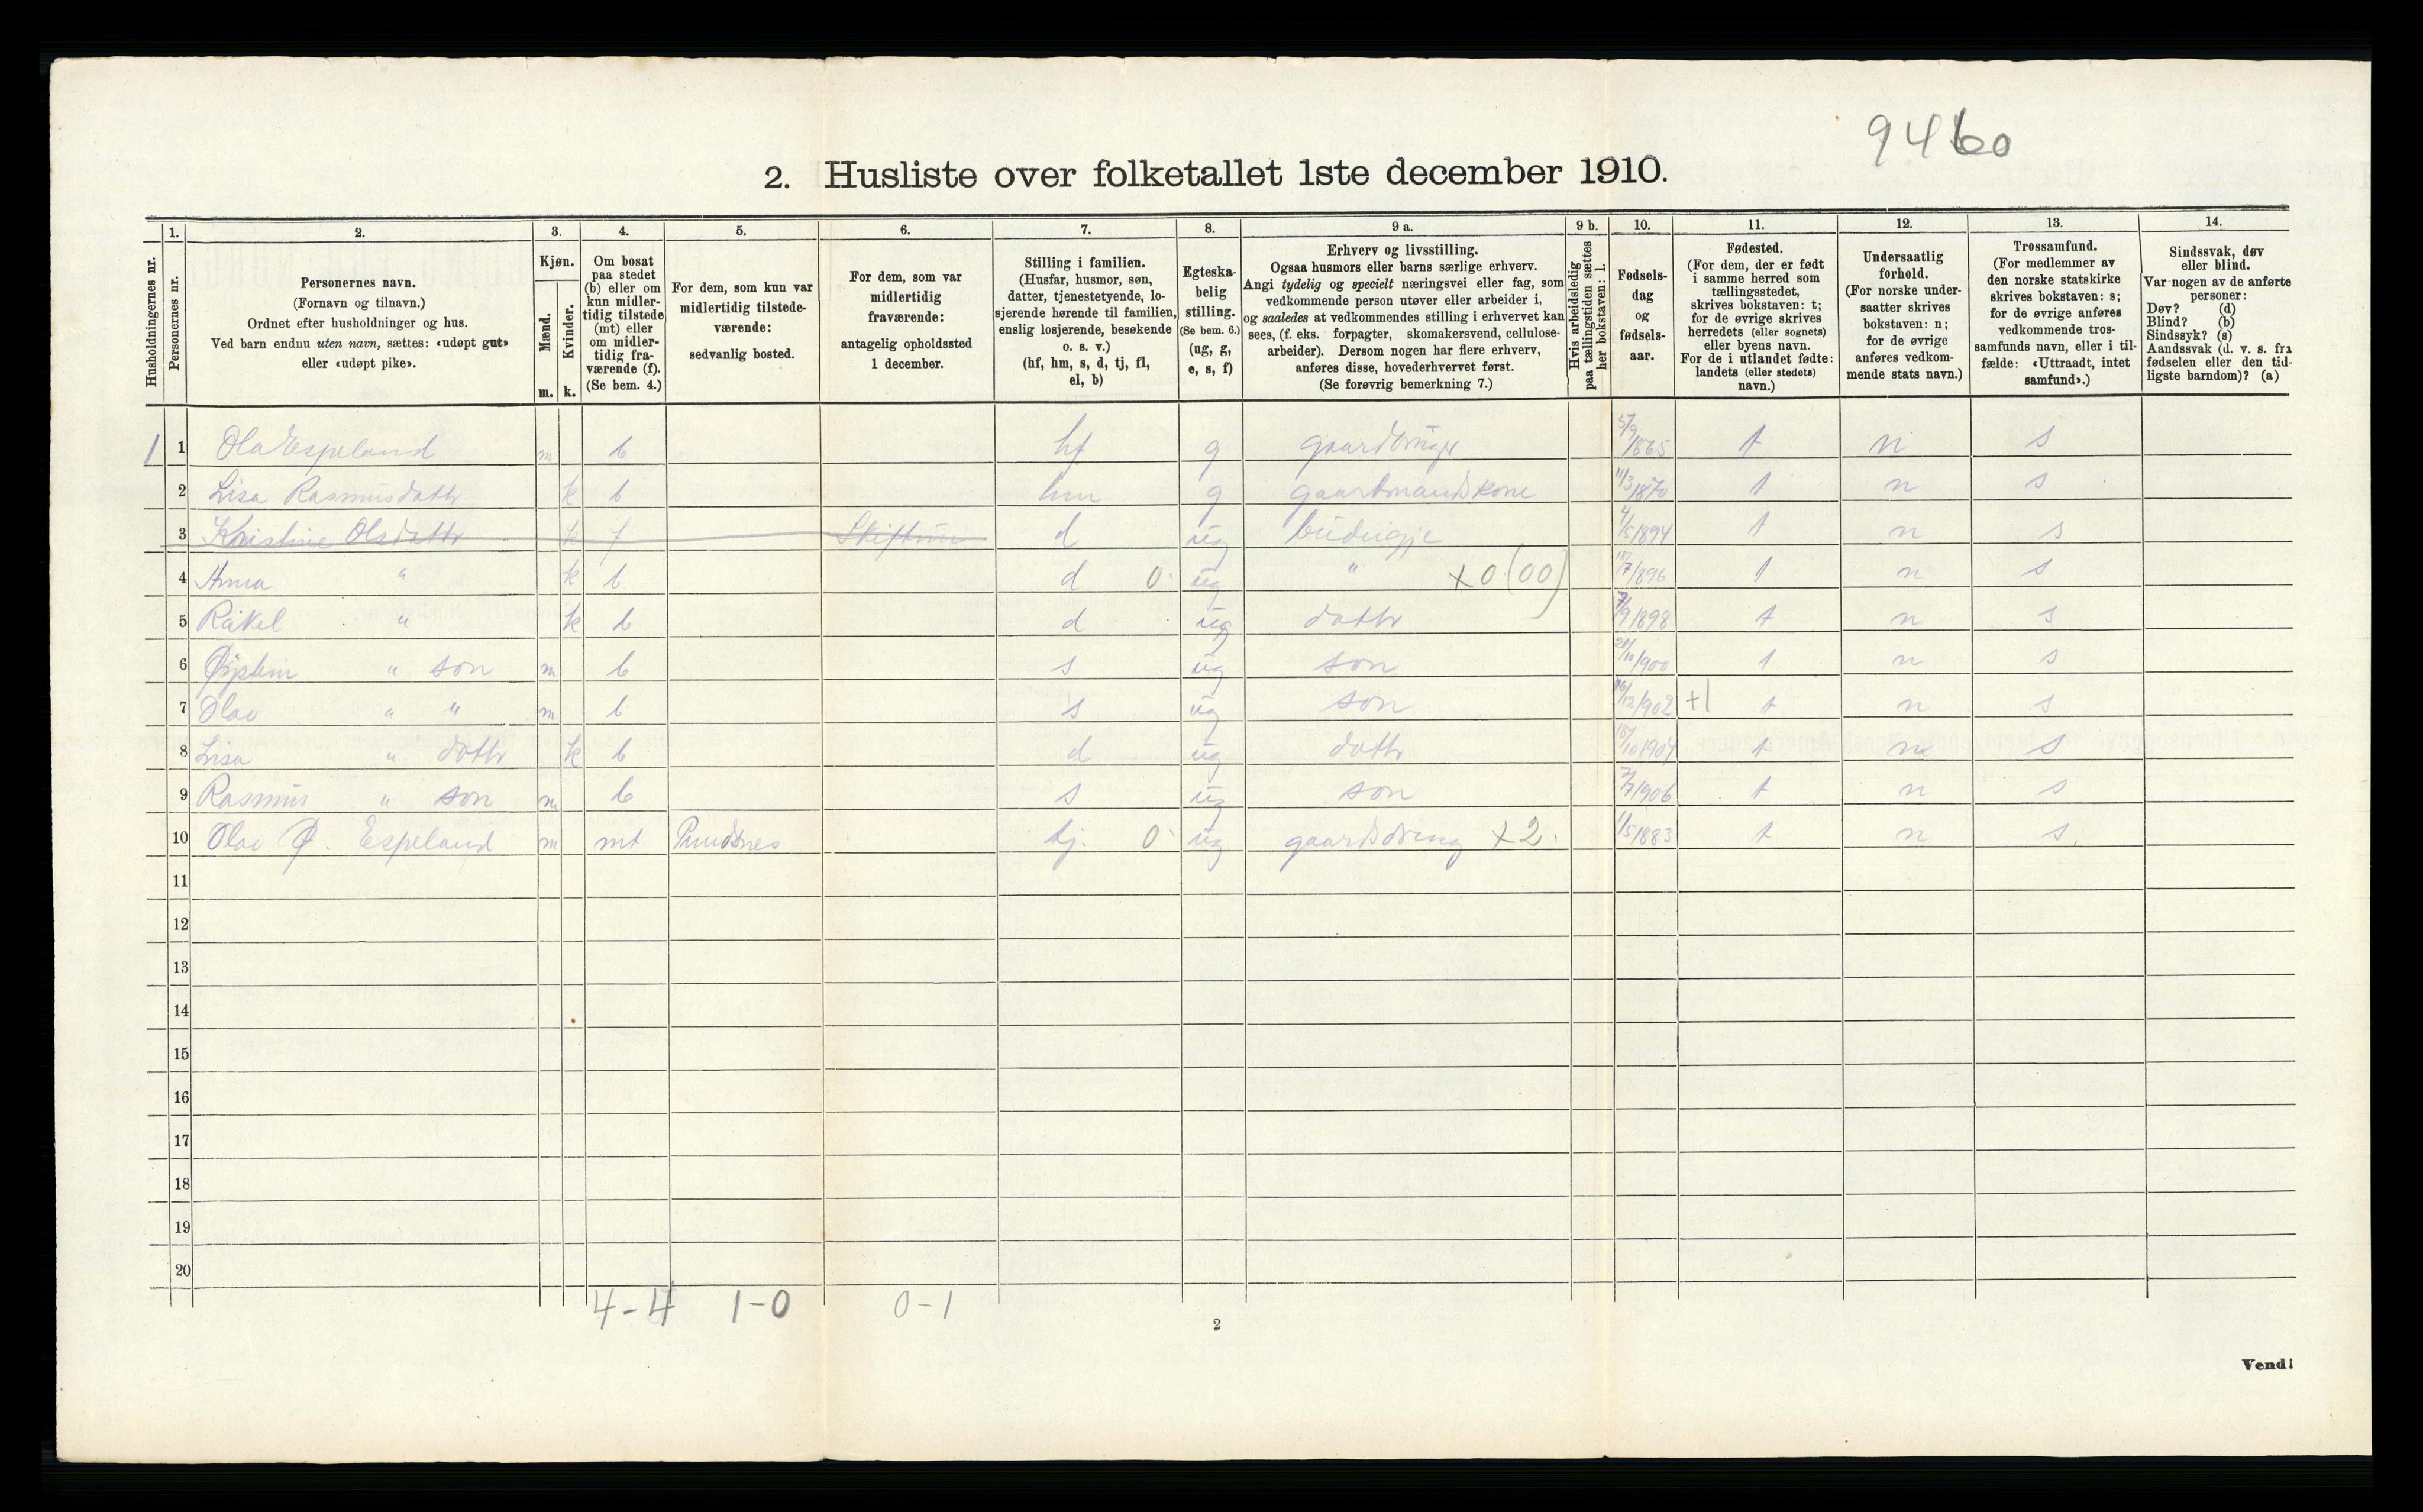 9460
2. Husliste over folketallet 1ste december 1910.
Husholdningernes nr.
1. Personernes nr.
2. Personernes navn.
(Fornavn og tilnavn.)
Ordnet efter husholdninger og hus.
Ved barn endnu uten navn, sættes: «udøpt gut»
eller «udøpt pike».
3. Kjøn.
Mænd. m.
Kvinder. k.
4. Om bosat
paa stedet
(b) eller om
kun midler-
tidig tilstede
(mt) eller
om midler-
tidig fra-
værende (f).
(Se bem. 4.)
5. For dem, som kun var
midlertidig tilstede-
værende:
sedvanlig bosted.
6. For dem, som var
midlertidig
fraværende:
antagelig opholdssted
1 december.
7. Stilling i familien.
(Husfar, husmor, søn,
datter, tjenestetyende, lo-
sjerende hørende til familien,
enslig losjerende, besøkende
o. s. v.)
(hf, hm, s, d, tj, fl,
el, b)
8. Egteska-
belig
stilling.
(Se bem. 6.)
(ug, g,
e, s, f)
9 a. Erhverv og livsstilling.
Ogsaa husmors eller barns særlige erhverv.
Angi tydelig og specielt næringsvei eller fag, som
vedkommende person utøver eller arbeider i,
og saaledes at vedkommendes stilling i erhvervet kan
sees, (f. eks. forpagter, skomakersvend, cellulose-
arbeider). Dersom nogen har flere erhverv,
anføres disse, hovederhvervet først.
(Se forøvrig bemerkning 7.)
9 b. Hvis arbeidsledig
paa tællingstiden sættes
her bokstaven: l.
10. Fødsels-
dag
og
fødsels-
aar.
11. Fødested.
(For dem, der er født
i samme herred som
tællingsstedet,
skrives bokstaven: t;
for de øvrige skrives
herredets (eller sognets)
eller byens navn.
For de i utlandet fødte:
landets (eller stedets)
navn.)
12. Undersaatlig
forhold.
(For norske under-
saatter skrives
bokstaven: n;
for de øvrige
anføres vedkom-
mende stats navn.)
13. Trossamfund.
(For medlemmer av
den norske statskirke
skrives bokstaven: s;
for de øvrige anføres
vedkommende tros-
samfunds navn, eller i til-
fælde: «Uttraadt, intet
samfund».)
14. Sindssvak, døv
eller blind.
Var nogen av de anførte
personer:
Døv? (d)
Blind? (b)
Sindssyk? (s)
Aandssvak (d. v. s. fra
fødselen eller den tid-
ligste barndom)? (a)
1 1 Ola Espeland m b hf g gaardbruger 5/9 1865 t n s
2 Lisa Rasmusdattr k b hm g gaardmandskone 11/3 1870 t n s
3 Kristine Olsdattr k f d ug budeigje 4/5 1894 t n s
4 Anna " k b d 0 ug " x0(00) /7 1896 t n s
5 Rakel " k b d ug dattr 7/9 1898 t n s
6 " son m b s ug son /10 1900 t n s
7 Olav " " m b s ug son /12 1902 +1 t n s
8 Lisa " dottr k b d ug dottr /10 1904 t n s
9 Rasmus " son m b s ug son /7 1906 t n s
10 Olav Ø. Espeland m mt tj. 0 ug gaardsdreng x2. 1/5 1883 t n s.
11
12
13
14
15
16
17
18
19
20
4-4 1-0 0-1
2
Vend!